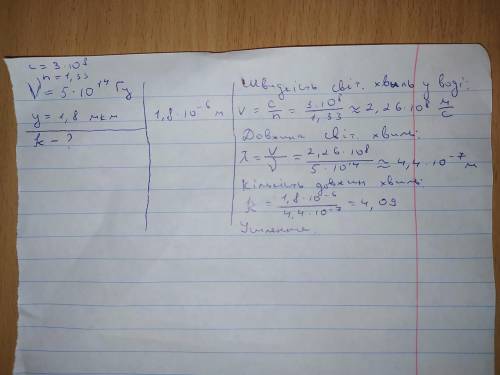 c = 3·10⁸
n = 1,33
ν = 5·10¹⁴ Гц
y = 1,8 мкм
k - ?
1,8·10⁻⁶ м
Швидкість світ. хвиль у воді:
v = c/n = 3·10⁸/1,33 ≈ 2,26·10⁸ м/с
Довжина світ. хвиль:
λ = v/ν = 2,26·10⁸/5·10¹⁴ ≈ 4,4·10⁻⁷ м
Кількість довжин хвиль:
k = 1,8·10⁻⁶/4,4·10⁻⁷ = 4,09